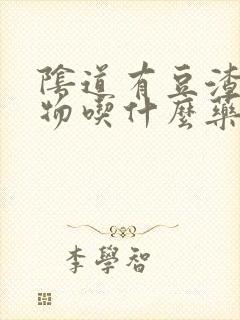 陰道有豆渣
物喫什麼藥
李學智